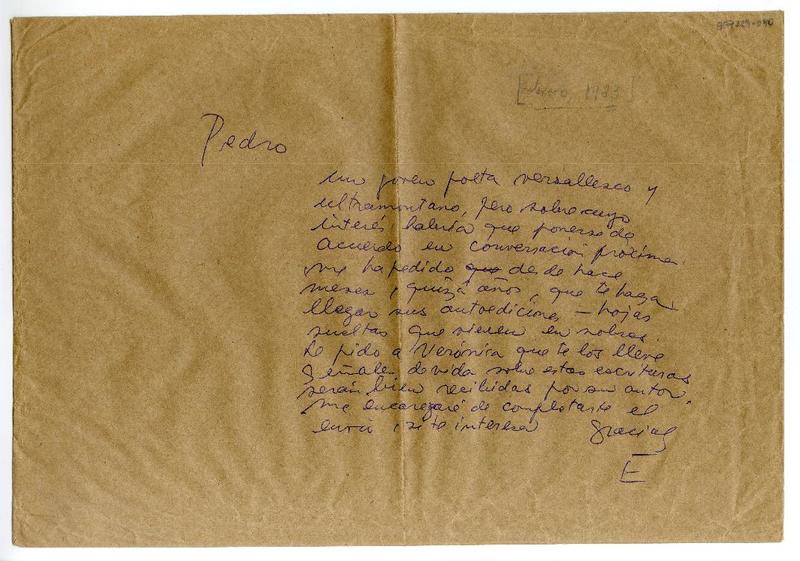 [Febrero, 1983]
Pedro
un joven poeta versallesco y
ultramontano, pero sobre cuyo
interés habría que ponerse de
acuerdo en conversación próxima
me ha pedido que desde hace
meses, quizá años, que te haga
llegar sus autoediciones — hojas
sueltas que vienen en sobres.
Le pido a Verónica que te los lleve
Señales de vida sobre estas escrituras
serán bien recibidas por su autor.
Me encargaré de completarte el
envío, si te interesa Gracias
E